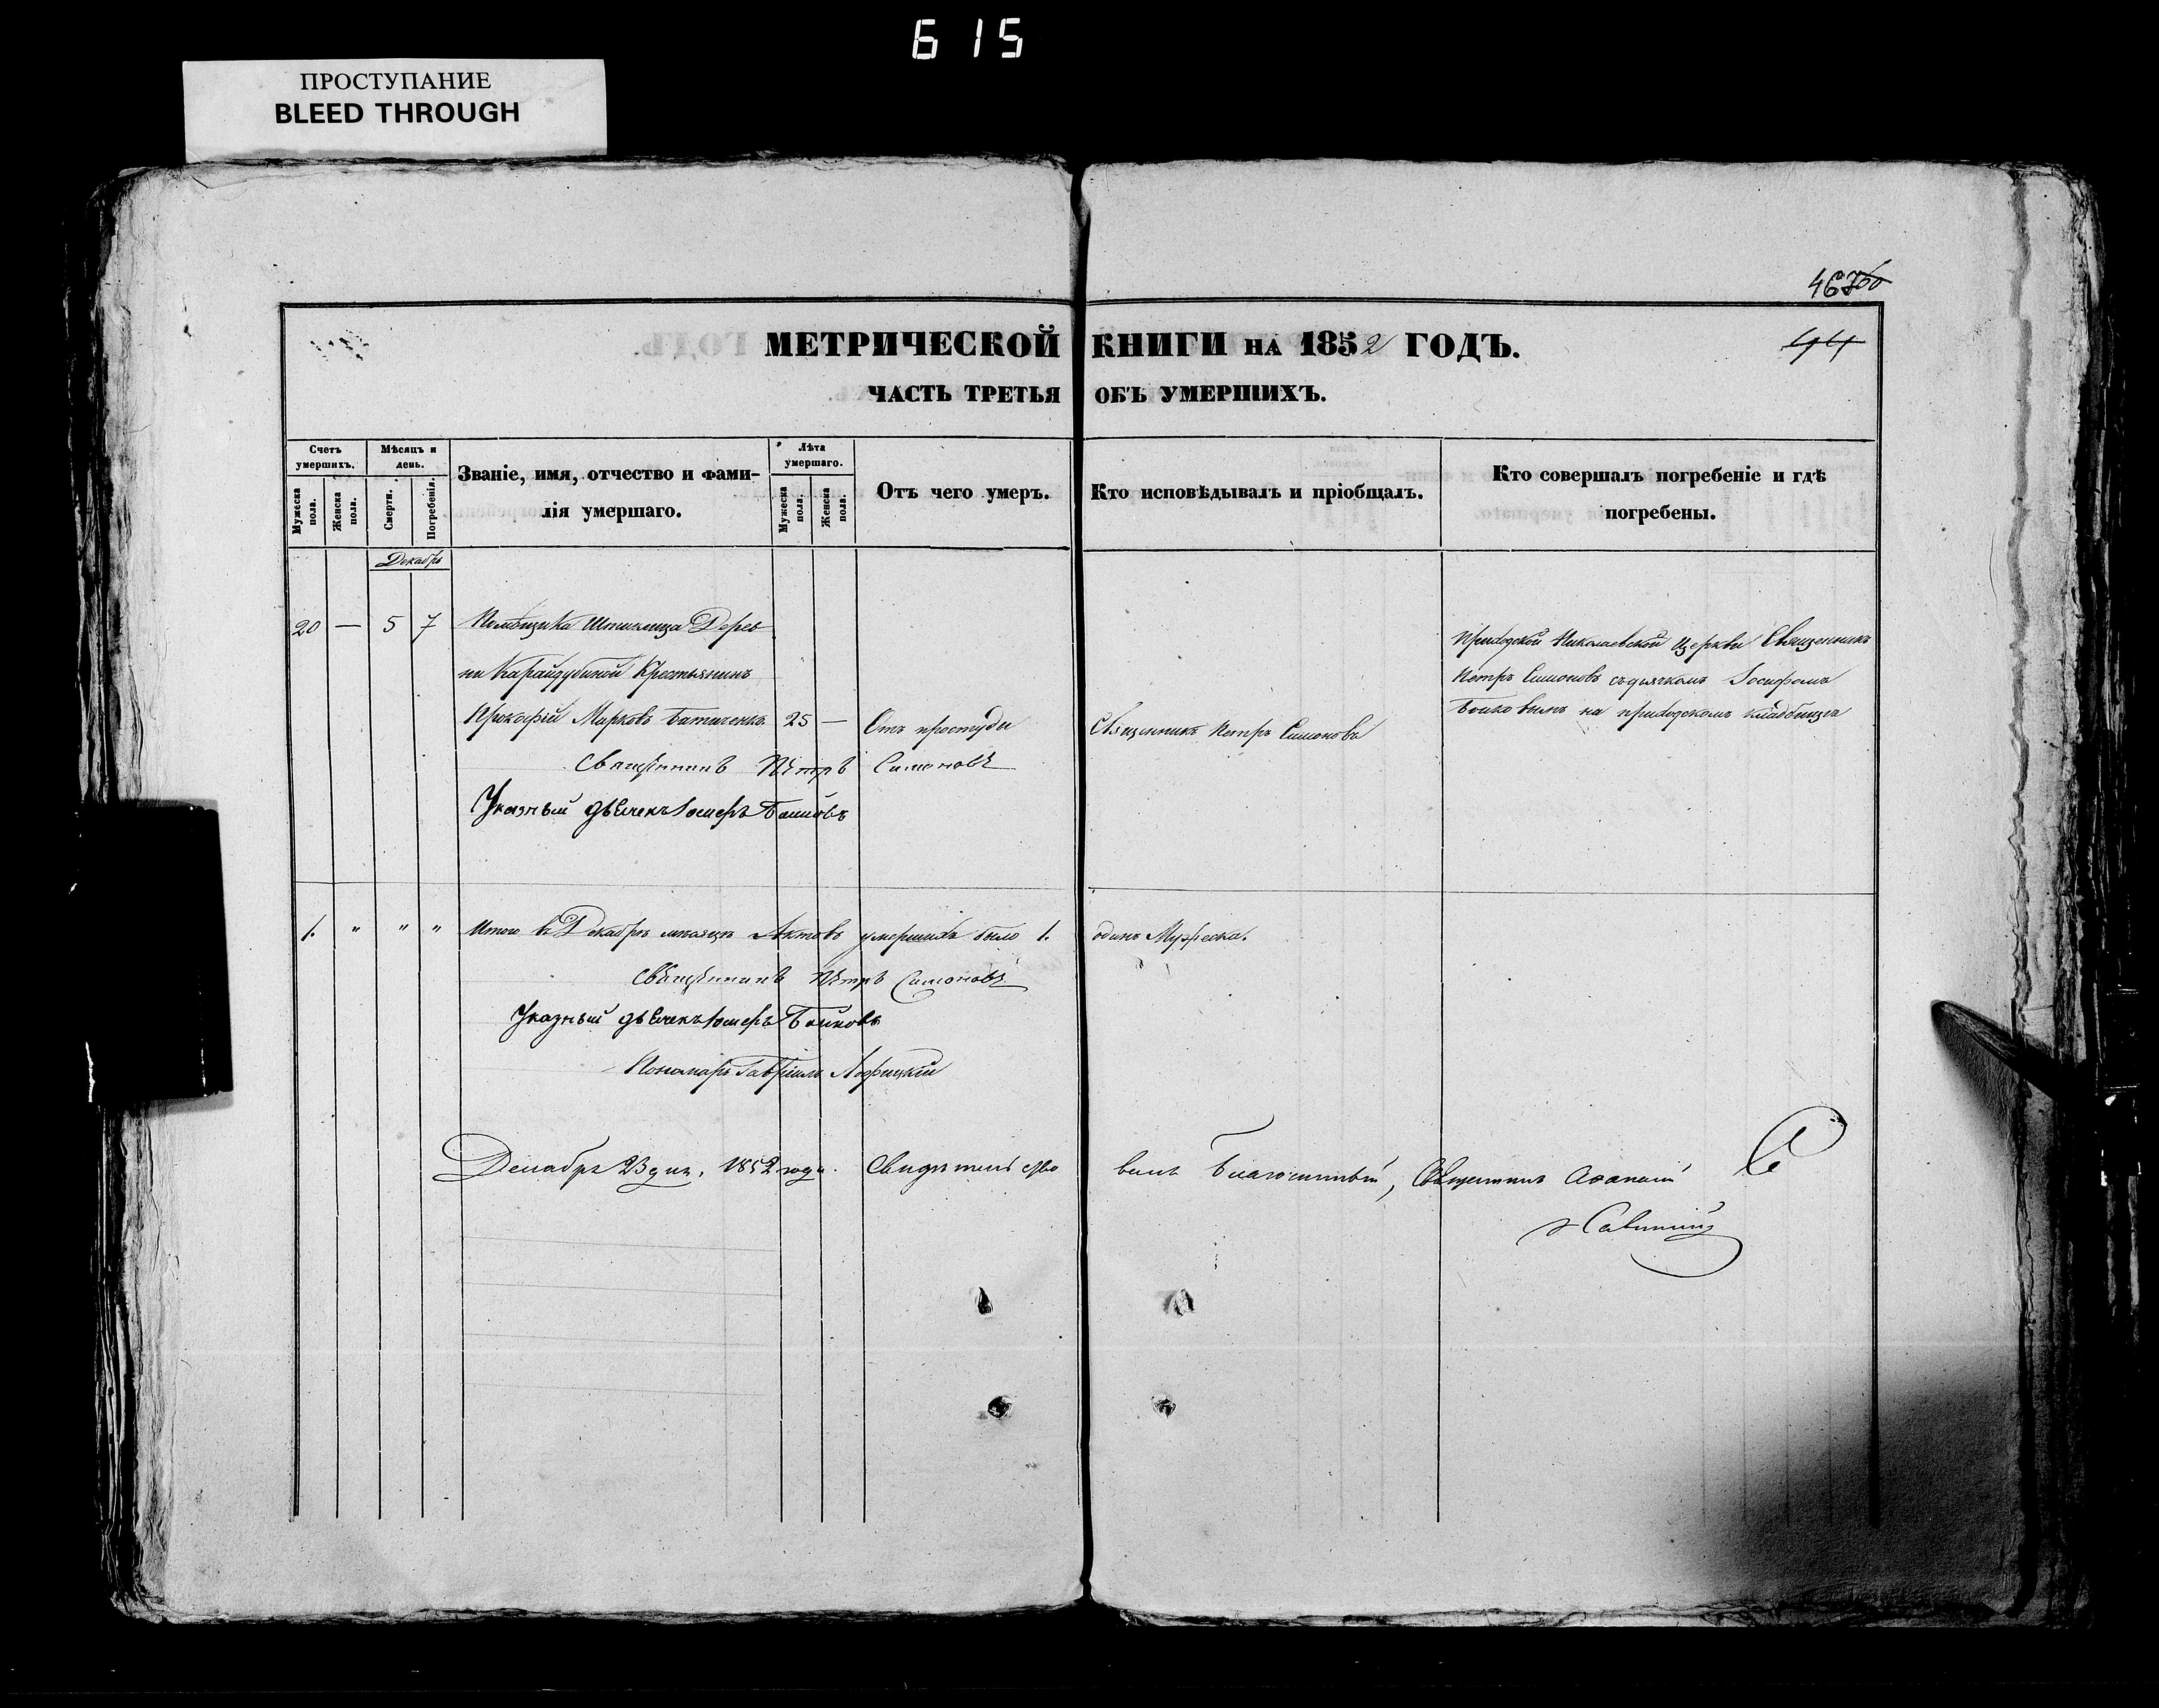 615
ПРОСТУПАНИЕ
BLEED THROUGH
467 60
44
МЕТРИЧЕСКОЙ КНИГИ НА 1852 ГОДЪ.
ЧАСТЬ ТРЕТЬЯ ОБЪ УМЕРШИХЪ.
Счетъ умершихъ.
Мужеска пола.
Женска пола.
Мѣсяцъ и день.
Смерти.
Погребенія.
Званіе, имя, отчество и фами-
лія умершаго.
Лѣта умершаго.
Мужеска пола.
Женска пола.
Отъ чего умеръ.
Кто исповѣдывалъ и пріобщалъ.
Кто совершалъ погребеніе и гдѣ
погребены.
Декабрь
20 — 5 7 Помѣщика Дерев
ни Крестьянинъ
Прокофій Марковъ 25 — Отъ простуды
Священникъ Петръ Симоновъ
Приходской Николаевской Церкви Священникъ
Петръ Симоновъ съ дьячкомъ Іосифомъ
на приходскомъ кладбищѣ
Священникъ Петръ Симоновъ
Указный дьячекъ Іосифъ Бойковъ
1. " " " Итого в Декабрѣ мѣсяцѣ Актовъ умершихъ было 1. одинъ Мужеска.
Священникъ Петръ Симоновъ
Указный дьячекъ Іосифъ Бойковъ
Пономарь Гавріилъ
Декабря 23 дня, 1852 года. Свидѣтельство валъ Благочинный, Священникъ